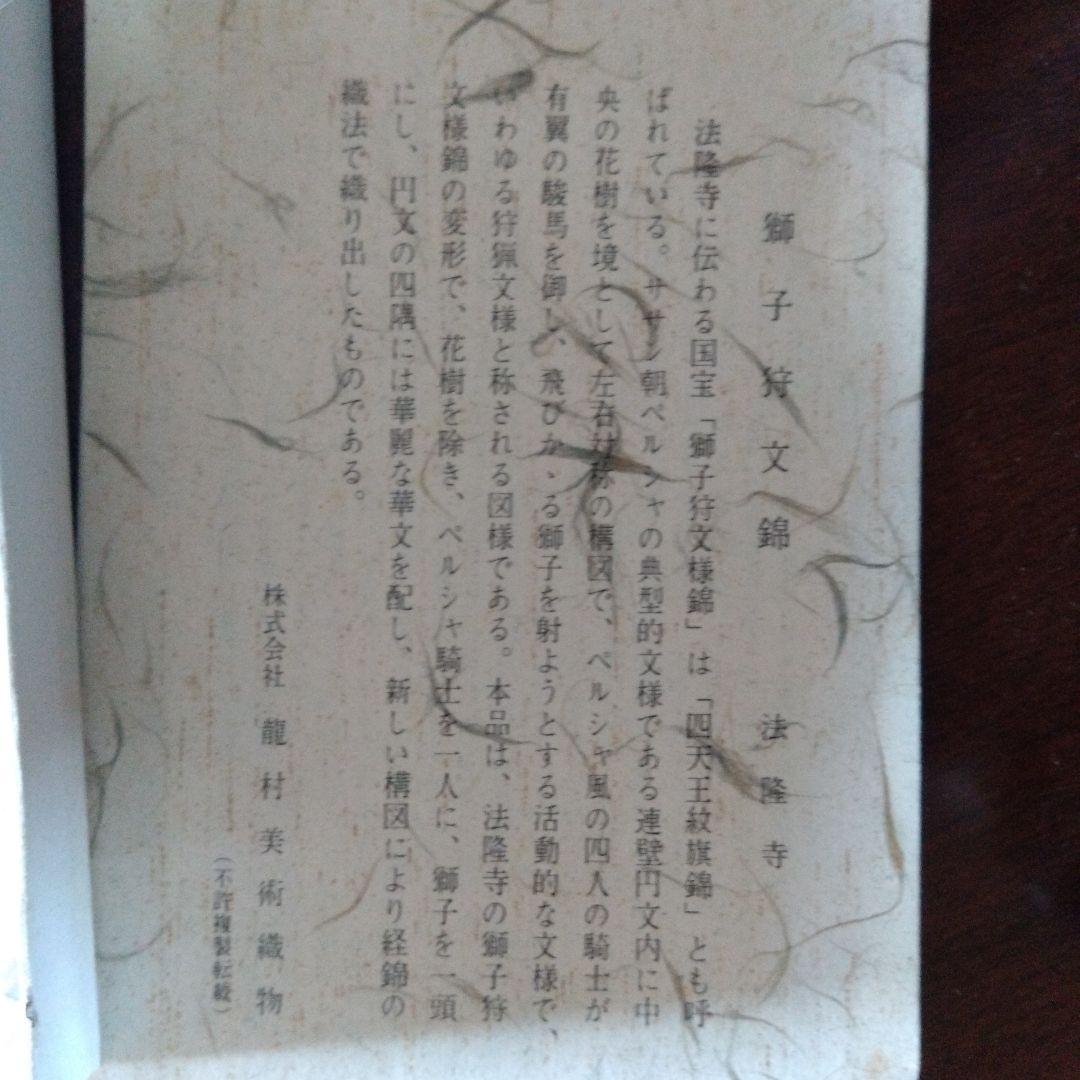 獅子狩文錦　法隆寺
法隆寺に伝わる国宝「獅子狩文様錦」は「四天王紋旗錦」とも呼
ばれている。ササン朝ペルシャの典型的文様である連璧円文内に中
央の花樹を境として左右対称の構図で、ペルシャ風の四人の騎士が
有翼の駿馬を御し、飛びかゝる獅子を射ようとする活動的な文様で、
いわゆる狩猟文様と称される図様である。本品は、法隆寺の獅子狩
文様錦の変形で、花樹を除き、ペルシャ騎士を一人に、獅子を一頭
にし、円文の四隅には華麗な華文を配し、新しい構図により経錦の
織法で織り出したものである。
株式会社 龍村美術織物
（不許複製転載）